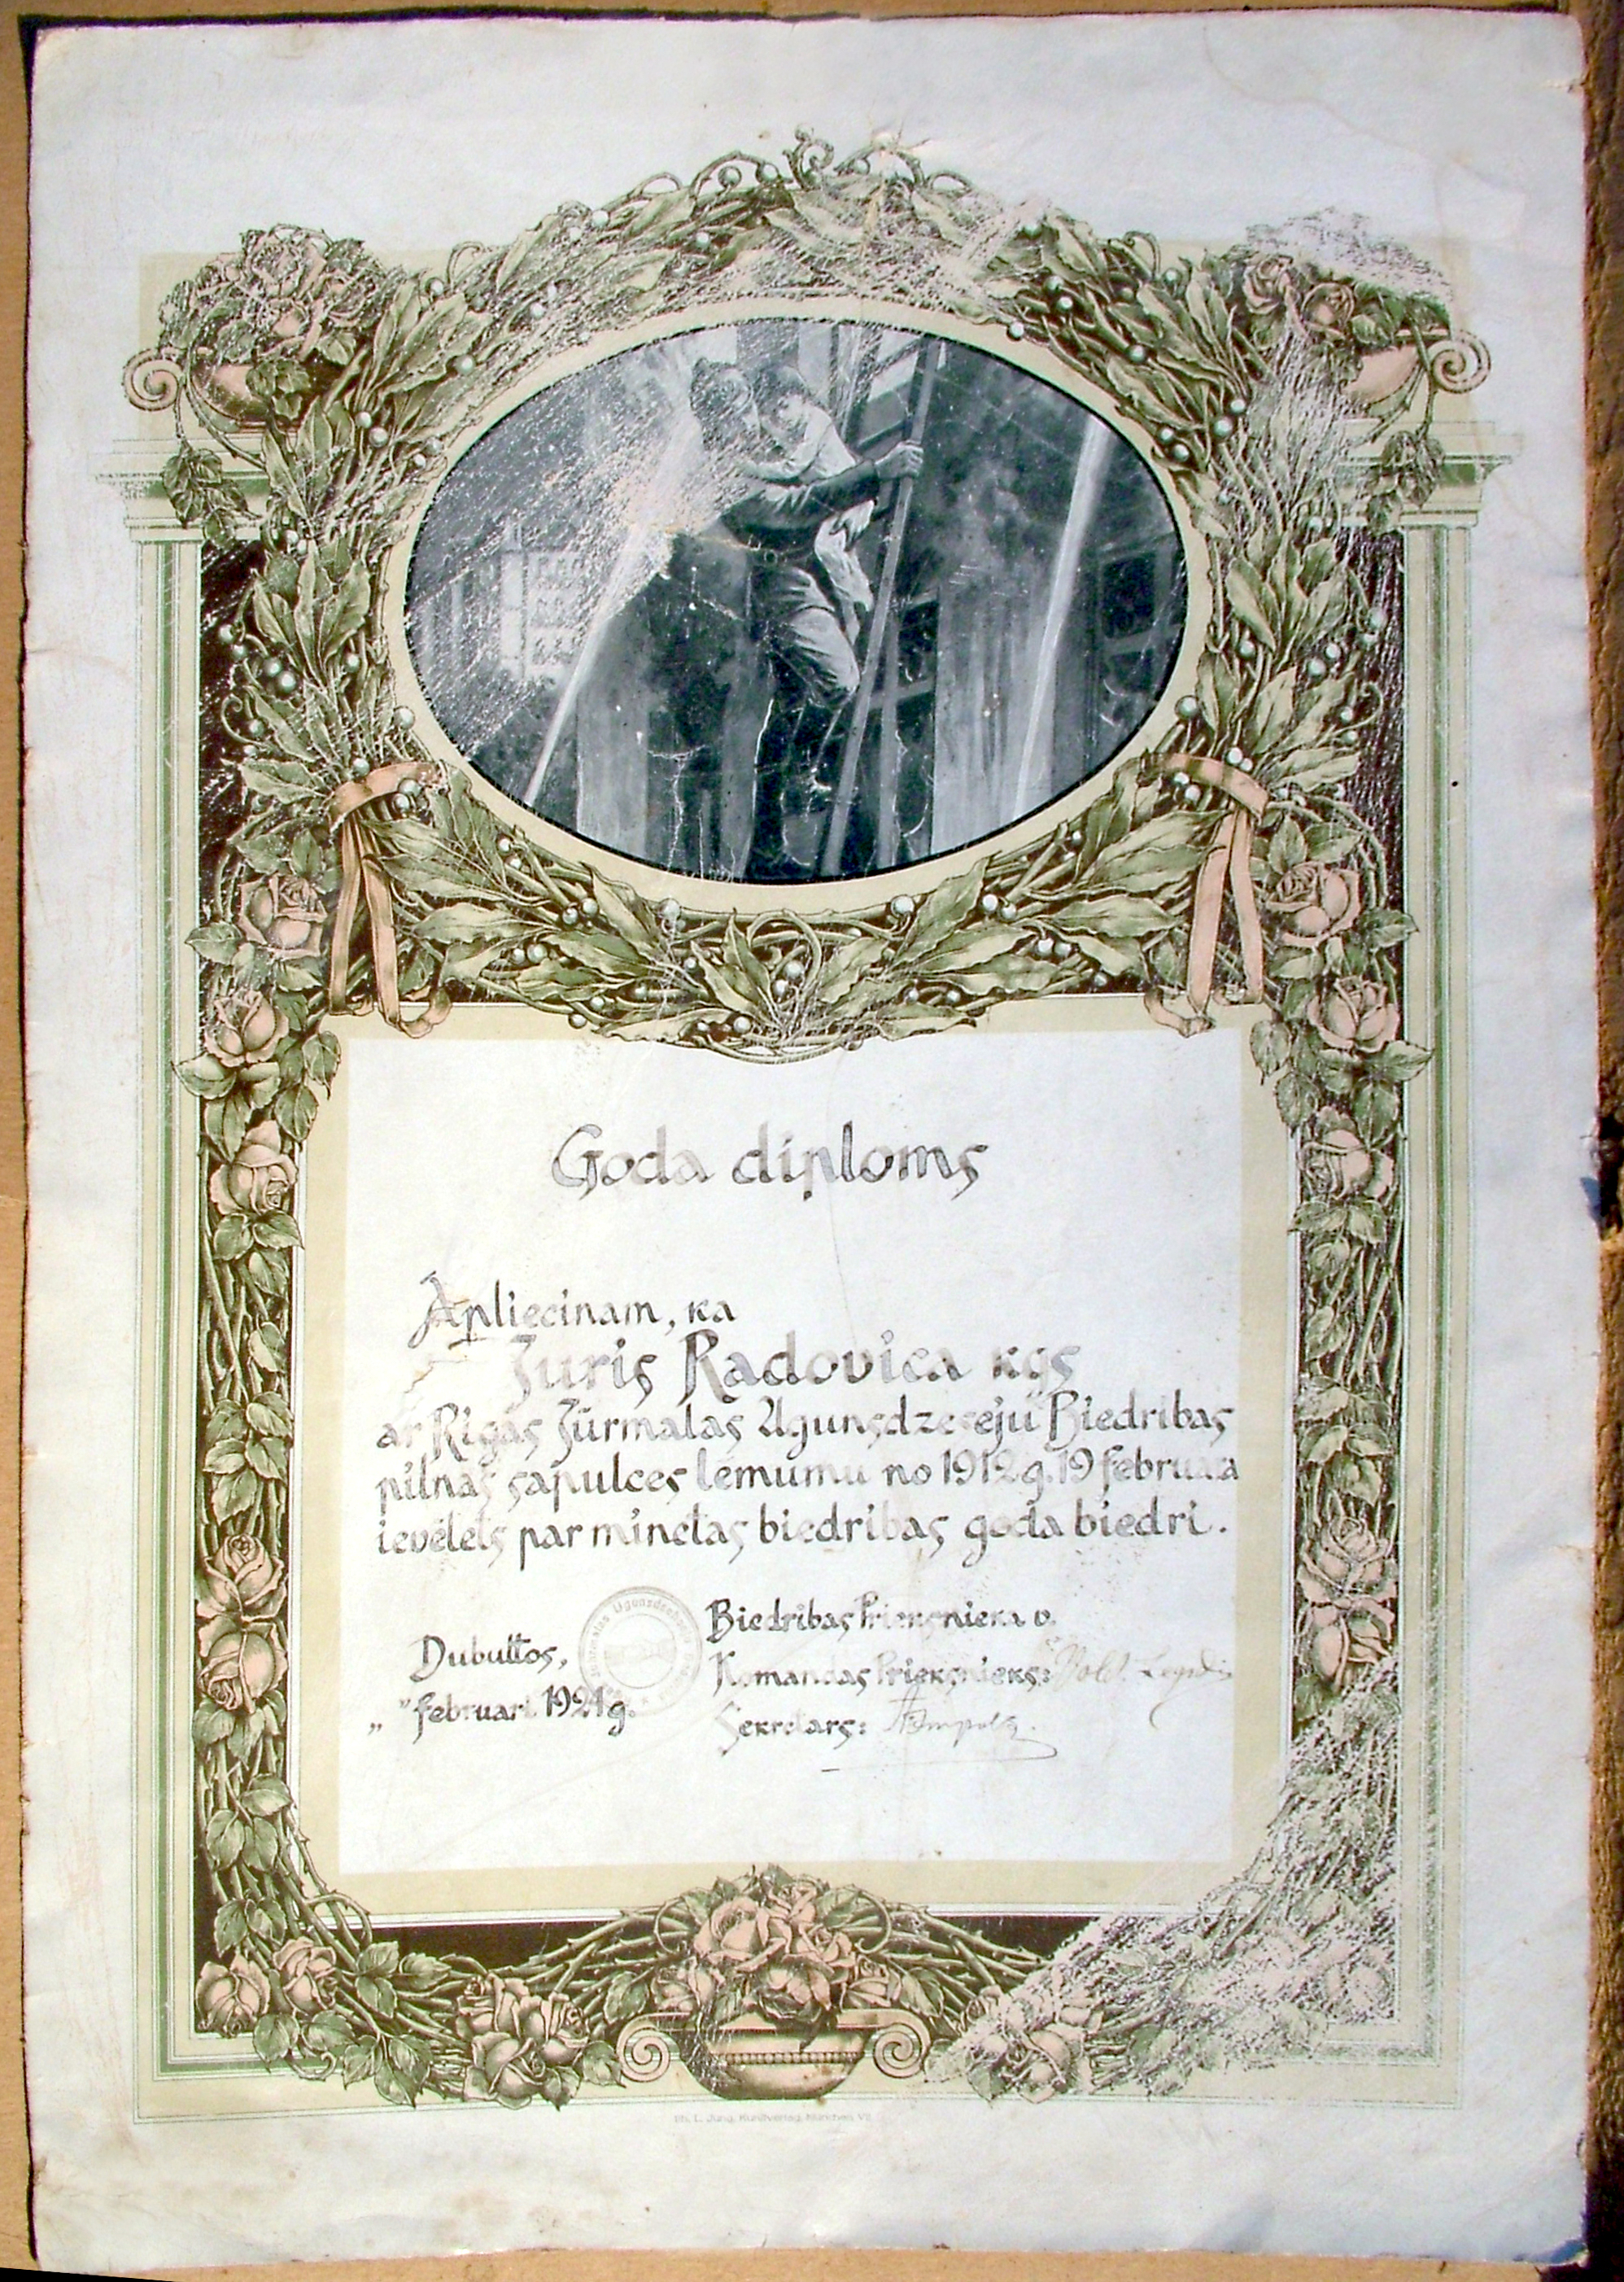 Goda diploms
Apliecinam, ka
Juris Radovica kgs
ar Rigas Jūrmalas Ugunsdzeseju Biedribas
pilnas sapulces lemumu no 1912 g. 19 februara
ievelets par minetas biedribas goda biedri.
Biedribas Prieksnieka v.
Dubultos,
Komandas Prieksnieks:
„ " februari 1921 g.
Sekretars:
Ph. L. Jung, Kunstverlag, München